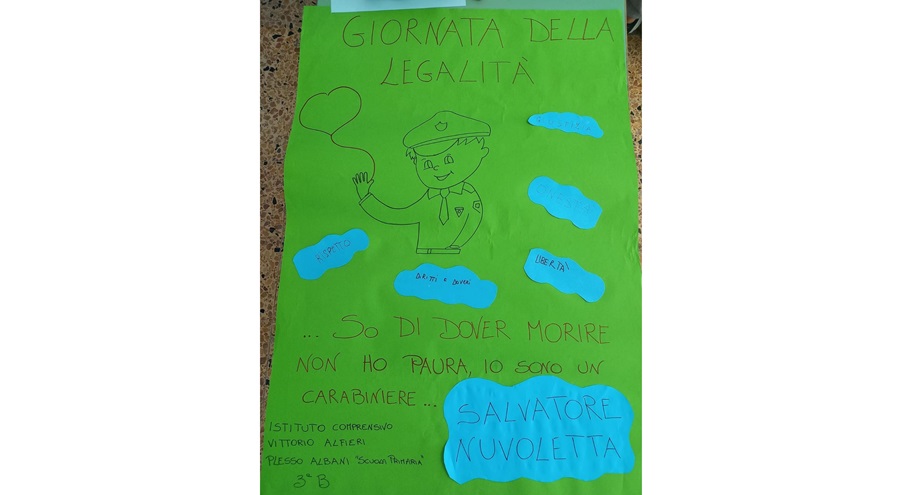 GIORNATA DELLA
LEGALITÀ
RISPETTO
DIRITTI e DOVERI
LIBERTÀ
... SO DI DOVER MORIRE
NON HO PAURA, IO SONO UN
CARABINIERE...
SALVATORE
NUVOLETTA
ISTITUTO COMPRENSIVO
VITTORIO ALFIERI
PLESSO ALBANI "SCUOLA PRIMARIA"
3ª B